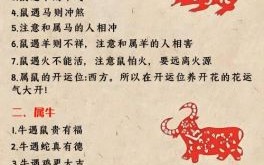 4.鼠遇马则冲煞
5.注意和属马的人相冲
6.鼠遇羊则不祥，注意和属羊的人相害
7.鼠遇火不能活，注意鼠怕火，要远离火源
8.属鼠的开运位:西方，所以在开运位养开花的花运
气大开!
二、属牛
1.牛遇鼠贵有福
2.牛遇蛇真有德